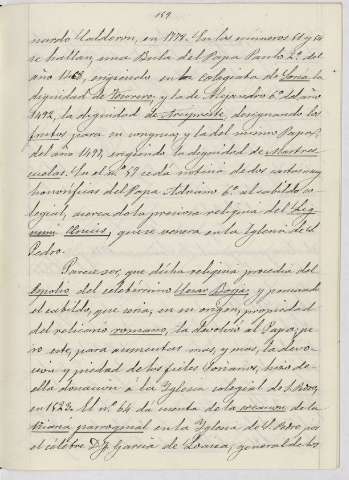 159
nardo Calderon, en 1779. En los números 51 y 52
se hallan, una Bula del Papa Paulo 2º, del
año 1468, erigiendo en la colegiata de Soria la
dignidad de Tesorero, y la de Alejandro 6º del año
1492, la dignidad de Arcipreste, designando los
frutos para su congrua; y la del mismo Papa,
del año 1497, erigiendo la dignidad de Maestres-
cuelas. En el nº 59 se dá noticia de dos cartas muy
honoríficas del Papa Adriano 6º al cabildo co-
legial, acerca de la preciosa reliquia del Lig-
num Crucis, que se venera en la Iglesia de S.
Pedro.
Parece ser, que dicha reliquia procedia del
Espolio del celebérrimo Cesar Borja; y pensando
el cabildo, que sería, en su origen, propiedad
del relicario romano, la devolvió al Papa; pe-
ro este, para aumentar mas, y mas, la devo-
cion y piedad de los fieles Sorianos, hizo de
ella donacion á la Iglesia colegial de S. Pedro,
en 1523. El nº 64 da cuenta de la creacion de la
Vicaría parroquial en la Iglesia de S. Pedro, por
el célebre D. F. Garcia de Loaisa, general de los